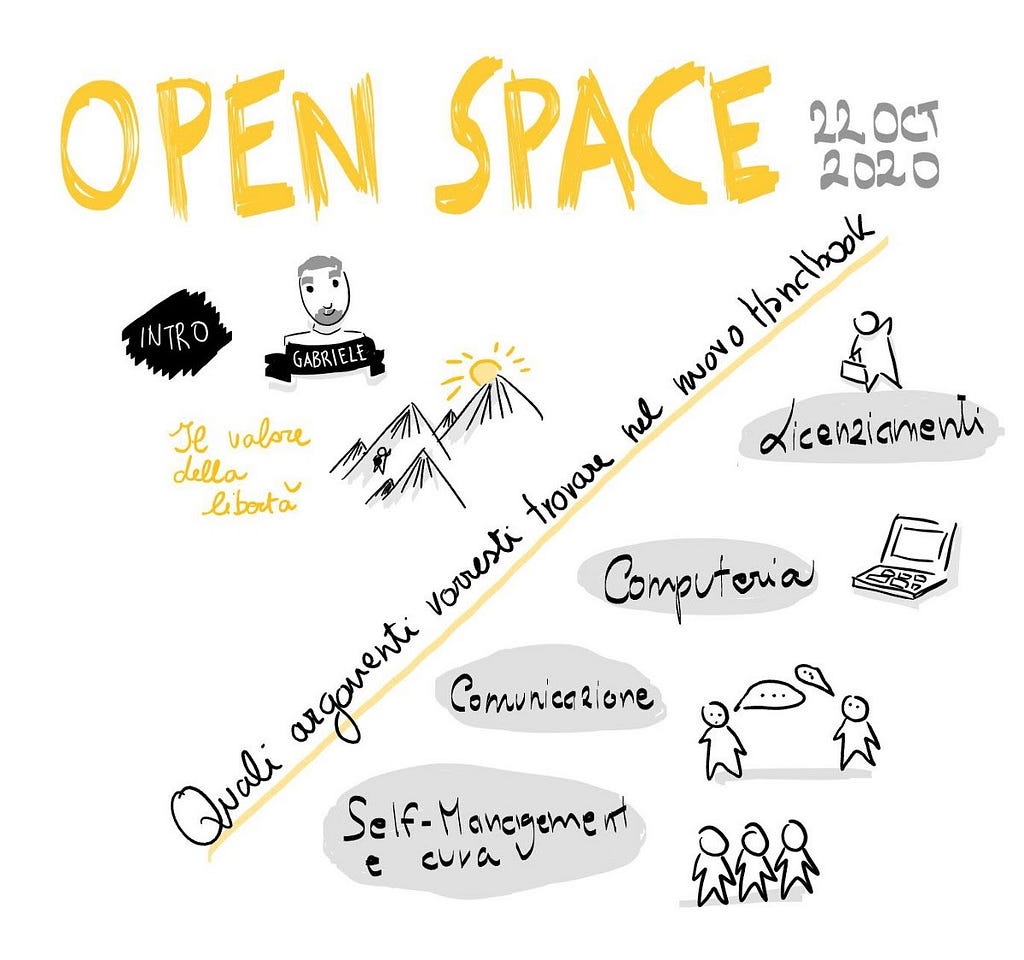 OPEN SPACE
22 OCT
2020
INTRO
GABRIELE
Il valore
della
libertà
Quali argomenti vorresti trovare nel nuovo Handbook
Licenziamenti
Computeria
Comunicazione
Self-Management
e cura